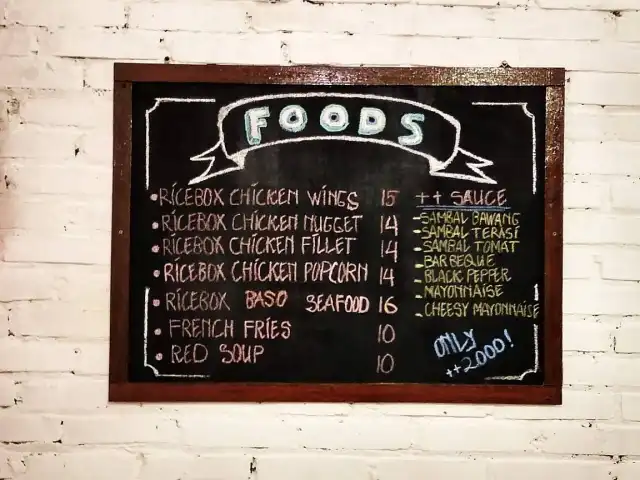 FOODS
•RICEBOX CHICKEN WINGS 15
•RICEBOX CHICKEN NUGGET 14
•RICEBOX CHICKEN FILLET 14
•RICEBOX CHICKEN POPCORN 14
•RICEBOX BASO SEAFOOD 16
•FRENCH FRIES 10
•RED SOUP 10
++ SAUCE
-SAMBAL BAWANG
-SAMBAL TERASI
-SAMBAL TOMAT
-BARBEQUE
-BLACK PEPPER
-MAYONNAISE
-CHEESY MAYONNAISE
ONLY
++2000!